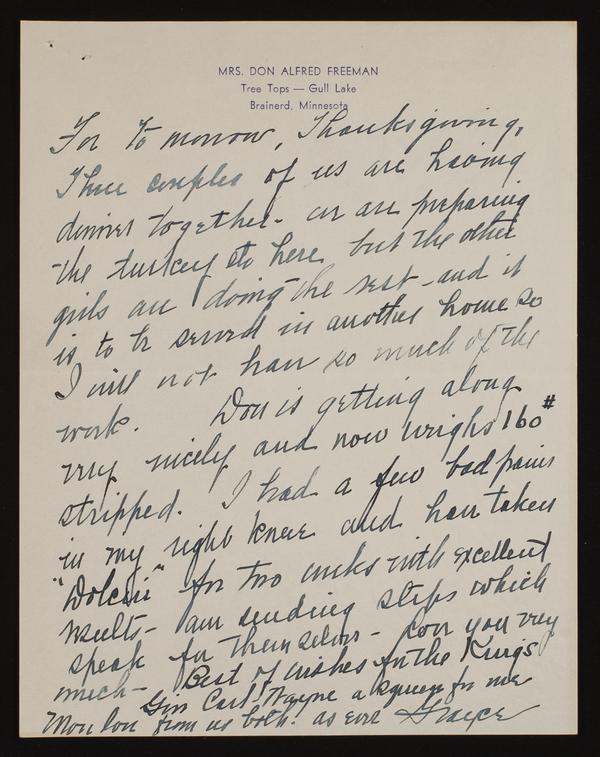 MRS. DON ALFRED FREEMAN
Tree Tops — Gull Lake
Brainerd, Minnesota
For To morrow, Thanksgiving,
Three couples of us are having
dinner together - we are preparing
the turkey etc here but the other
girls are doing the rest - and it
is to be served in another home so
I will not have so much of the
work. Don is getting along
very nicely and now weighs 160#
stripped. I had a few bad pains
in my right knee and have taken
"Dolcin" for two weeks with excellent
results - am sending slips which
speak for themselves - Love you very
much - Best of wishes for the Kings
Give Carl Wayne a squeeze for me
from us both. as ever